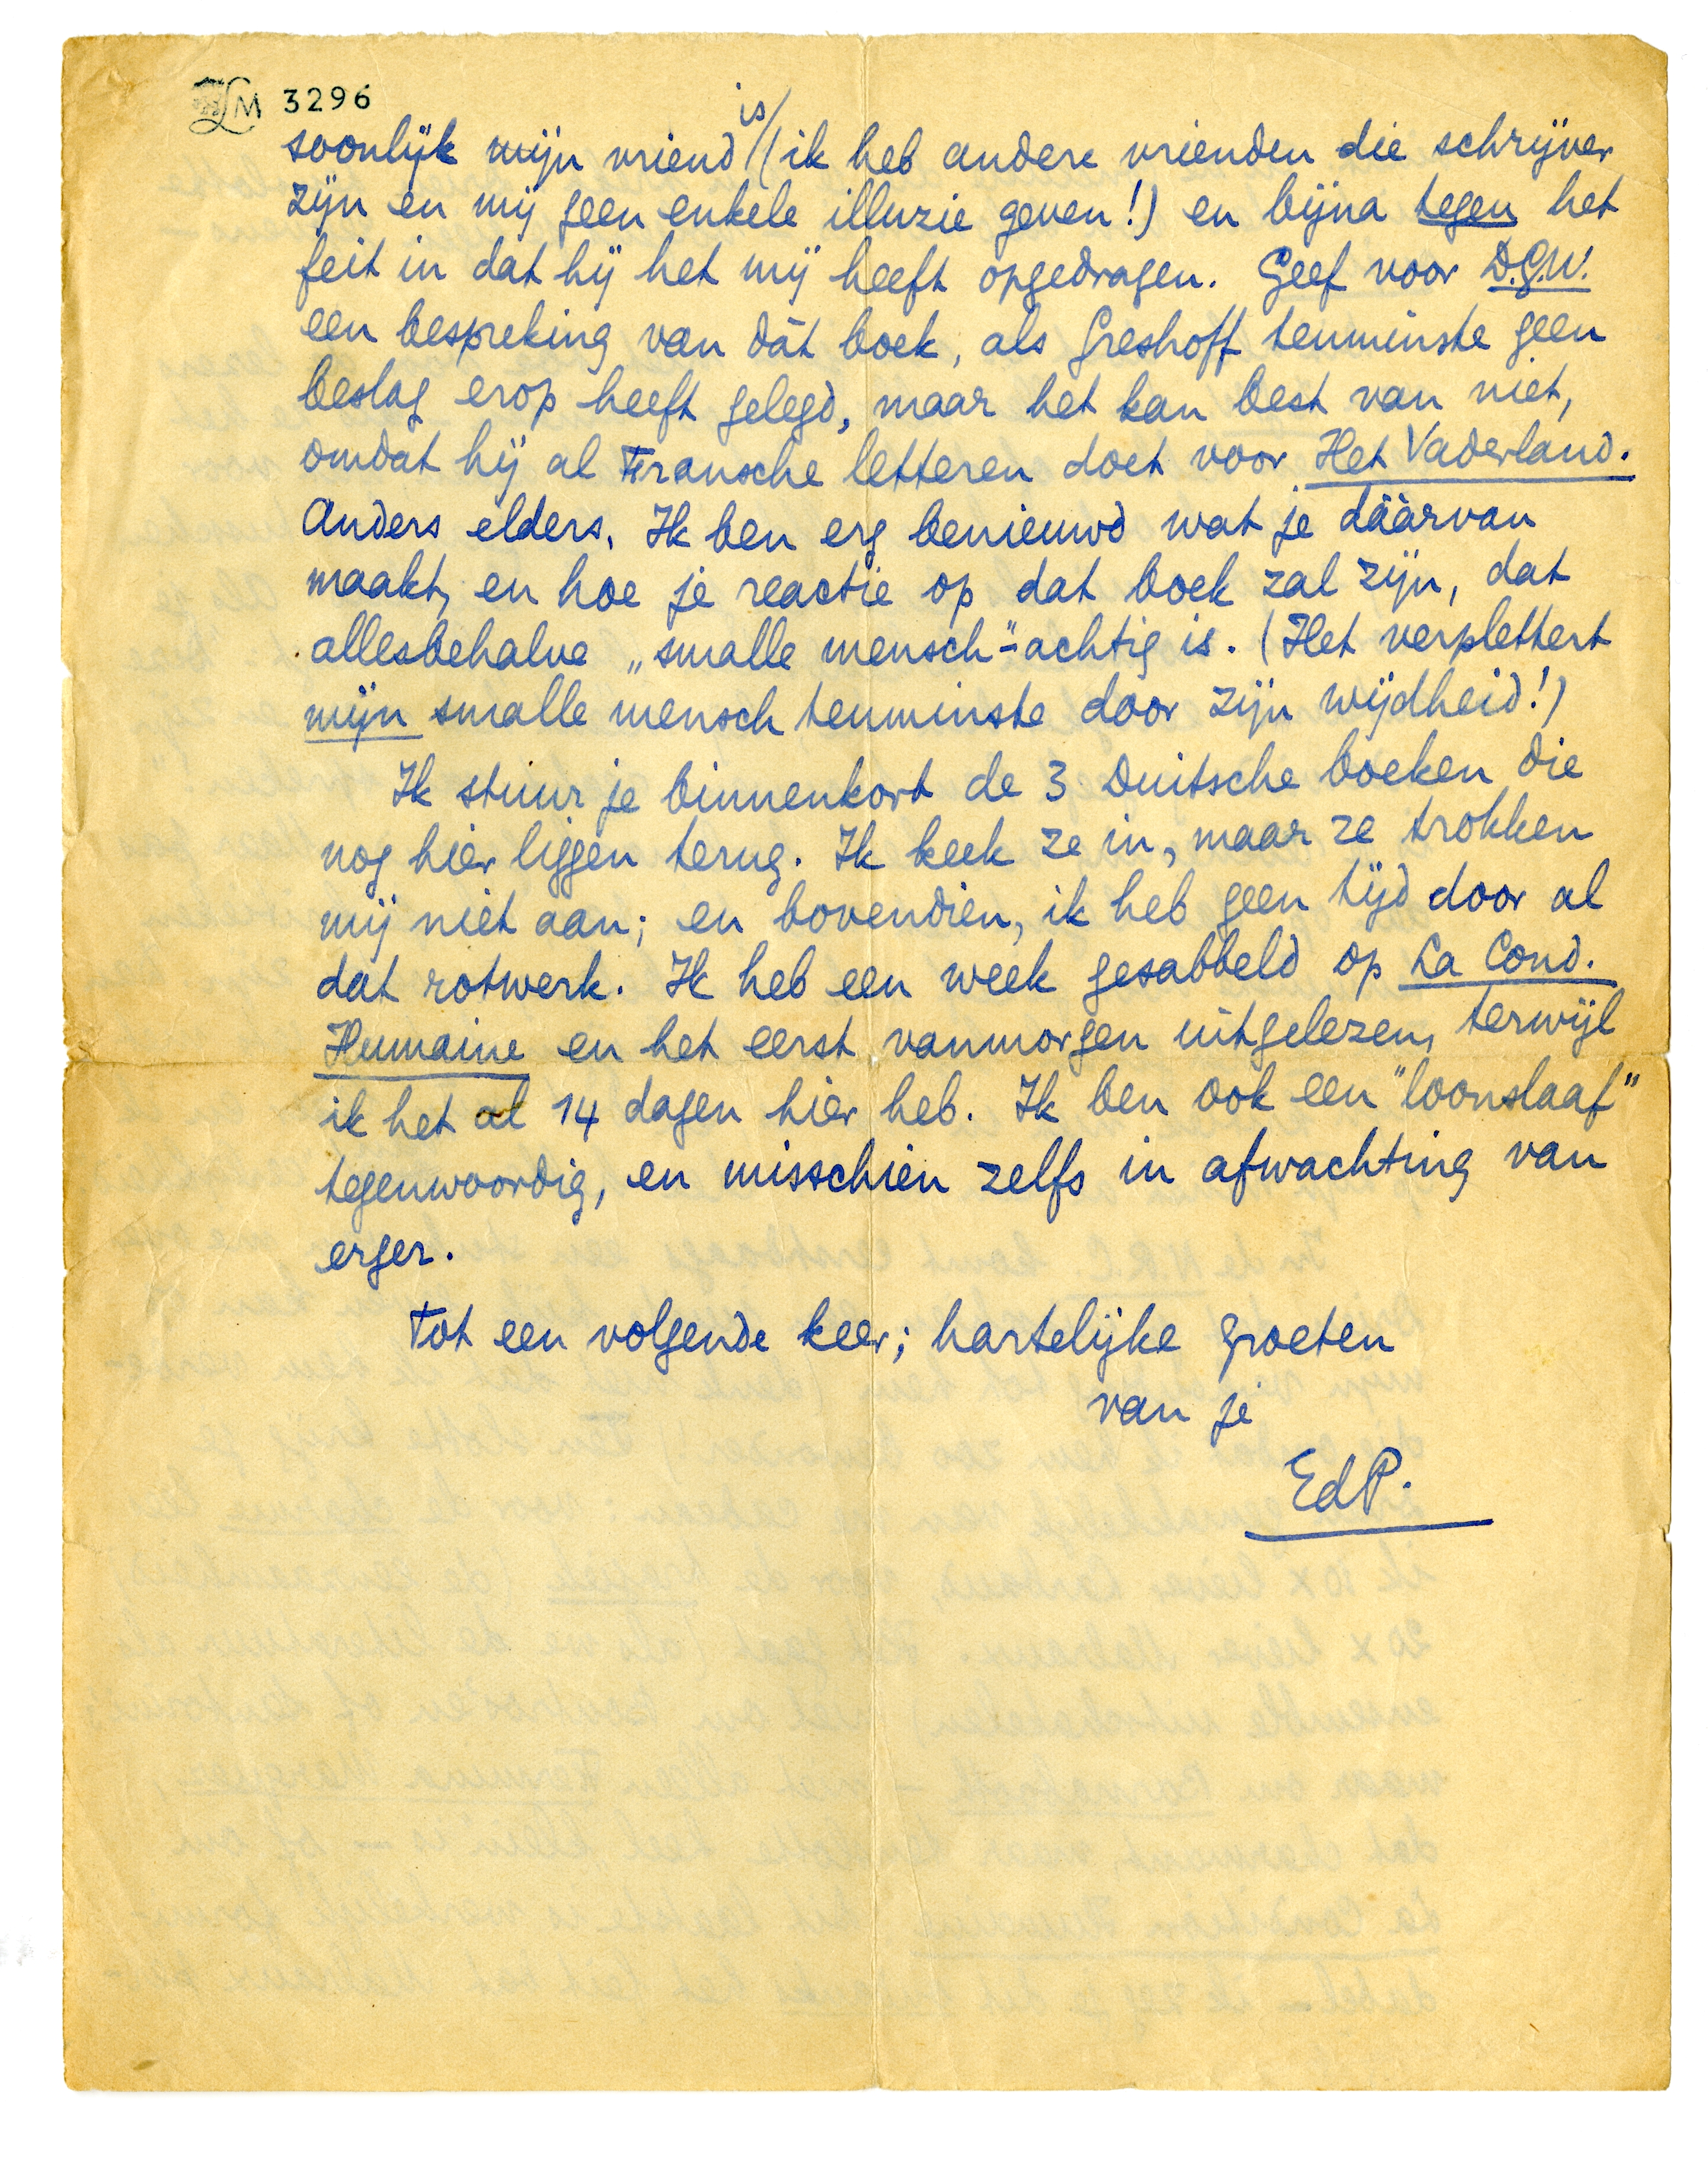 LM 3296
is/
soonlijk mijn vriend /(ik heb andere vrienden die schrijver
zijn en mij geen enkele illuzie geven!) en bijna tegen het
feit in dat hij het mij heeft opgedragen. Geef voor D.G.W.
een bespreking van dàt boek, als Greshoff tenminste geen
beslag erop heeft gelegd, maar het kan best van niet,
omdat hij al Fransche letteren doet voor Het Vaderland.
Anders elders. Ik ben erg benieuwd wat je dáárvan
maakt, en hoe je reactie op dat boek zal zijn, dat
allesbehalve „smalle mensch"-achtig is. (Het verplettert
mijn smalle mensch tenminste door zijn wijdheid!)
Ik stuur je binnenkort de 3 Duitsche boeken die
nog hier liggen terug. Ik keek ze in, maar ze trokken
mij niet aan; en bovendien, ik heb geen tijd door al
dat rotwerk. Ik heb een week gesabbeld op La Cond.
Humaine en het eerst vanmorgen uitgelezen, terwijl
ik het al 14 dagen hier heb. Ik ben ook een "loonslaaf"
tegenwoordig, en misschien zelfs in afwachting van
erger.
Tot een volgende keer; hartelijke groeten
van je
EdP.